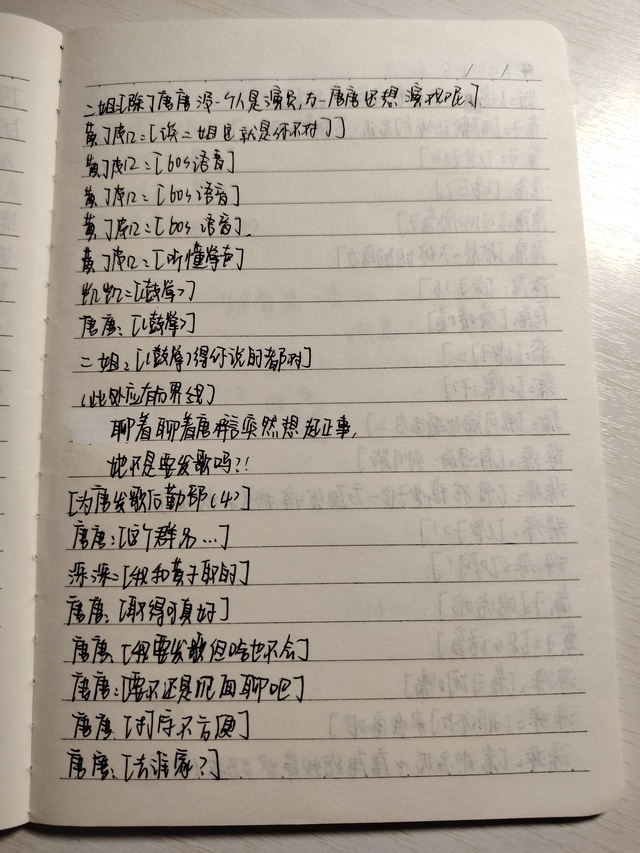 二姐:[除了唐唐深一个人是演员,万一唐唐还想演戏呢]
黄了虎口:[诶二姐这就是你不对了]
黄了虎口:[60s语音]
黄了虎口:[60s语音]
黄了虎口:[60s语音]
黄了虎口:[听懂掌声]
凯凯:[(鼓掌)]
唐唐:[(鼓掌)]
二姐:[(鼓掌)得你说的都对]
(此处应有分界线)
聊着聊着唐 突然想起正事,
她不是要发歌吗?!
[为唐发歌后勤部(4)]
唐唐:[这个群名...]
深深:[我和黄子取的]
唐唐:[取得可真好]
唐唐:[我要发歌但啥也不会]
唐唐:[要不还是见面聊吧]
唐唐:[打字不方便]
唐唐:[去谁家?]